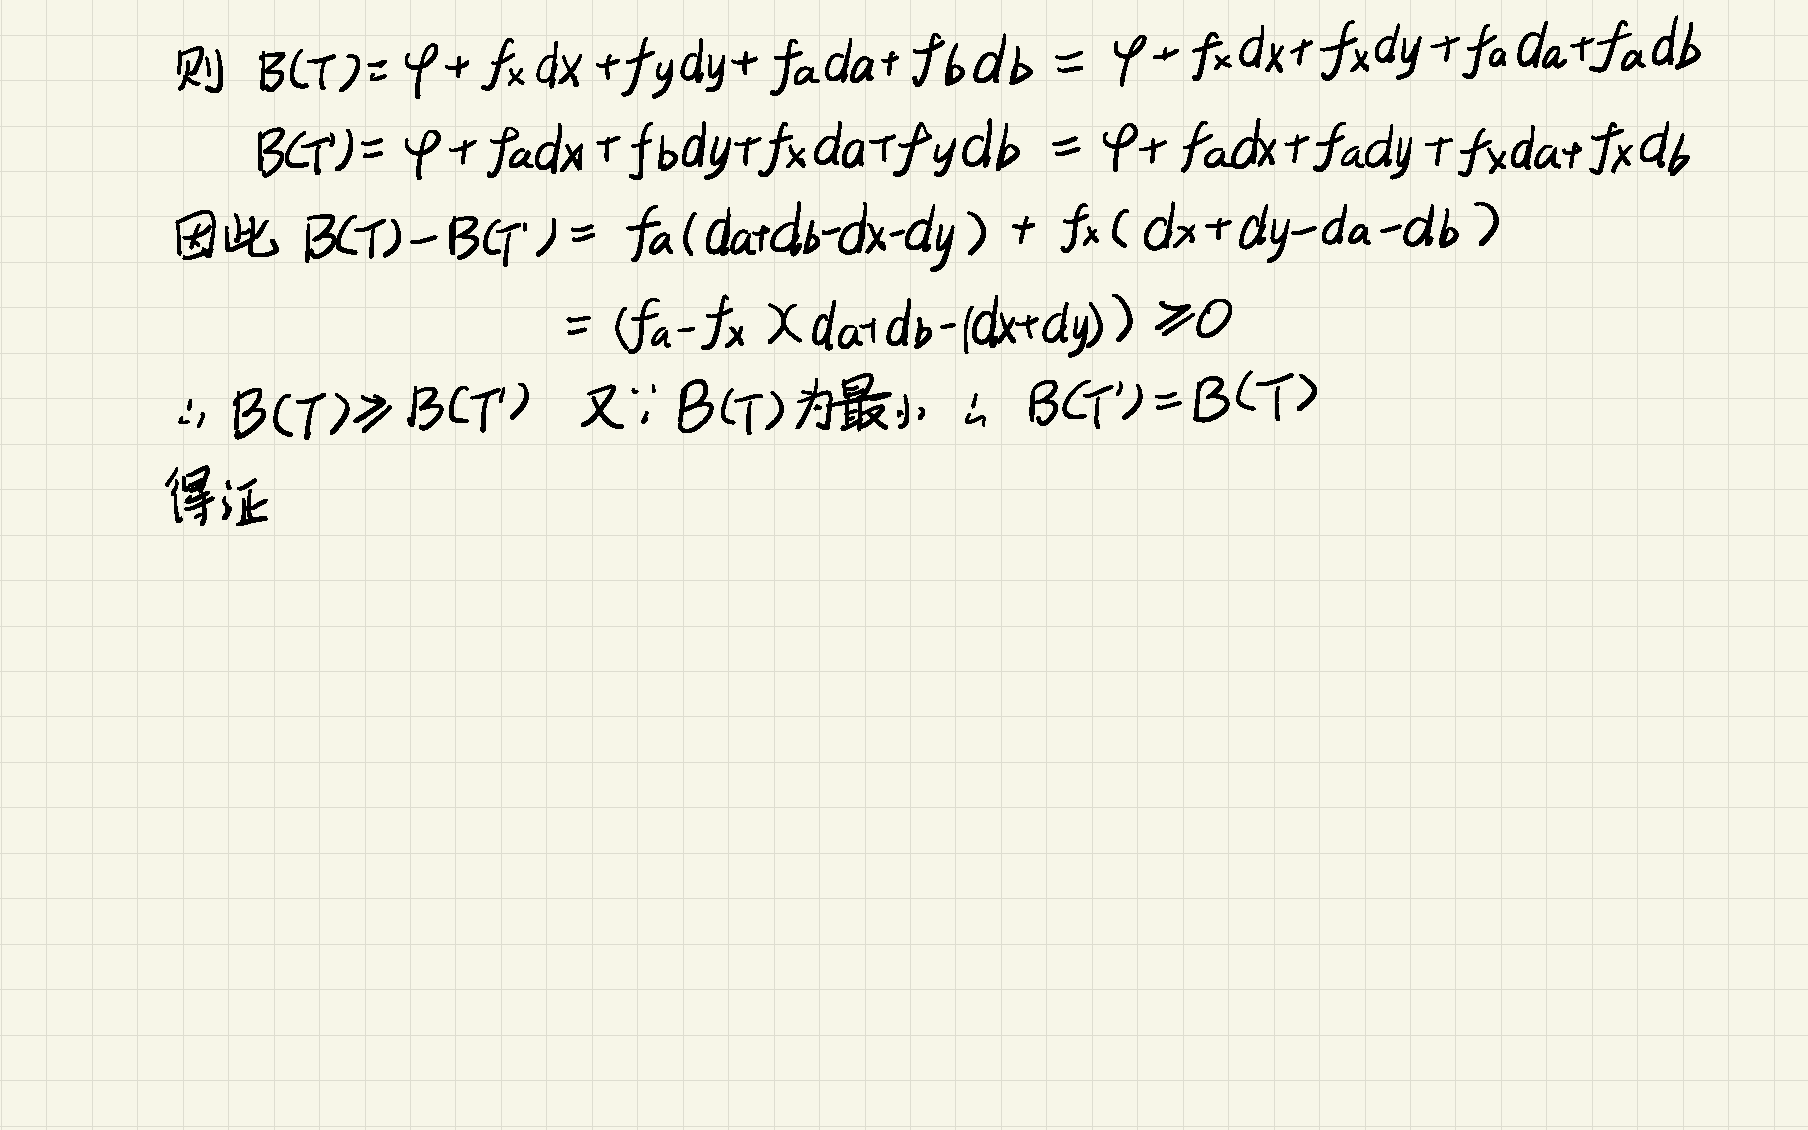 则 B(T)=φ+fxdx+fydy+fada+fbdb = φ+fxdx+fxdy+fada+fadb
B(T')=φ+fadx+fbdy+fxda+fydb = φ+fadx+fady+fxda+fxdb
因此 B(T)-B(T')= fa(da+db-dx-dy) + fx(dx+dy-da-db)
= (fa-fx)(da+db-(dx+dy)) ⩾0
∴ B(T)⩾B(T') 又∵ B(T)为最小 ∴ B(T')=B(T)
得证